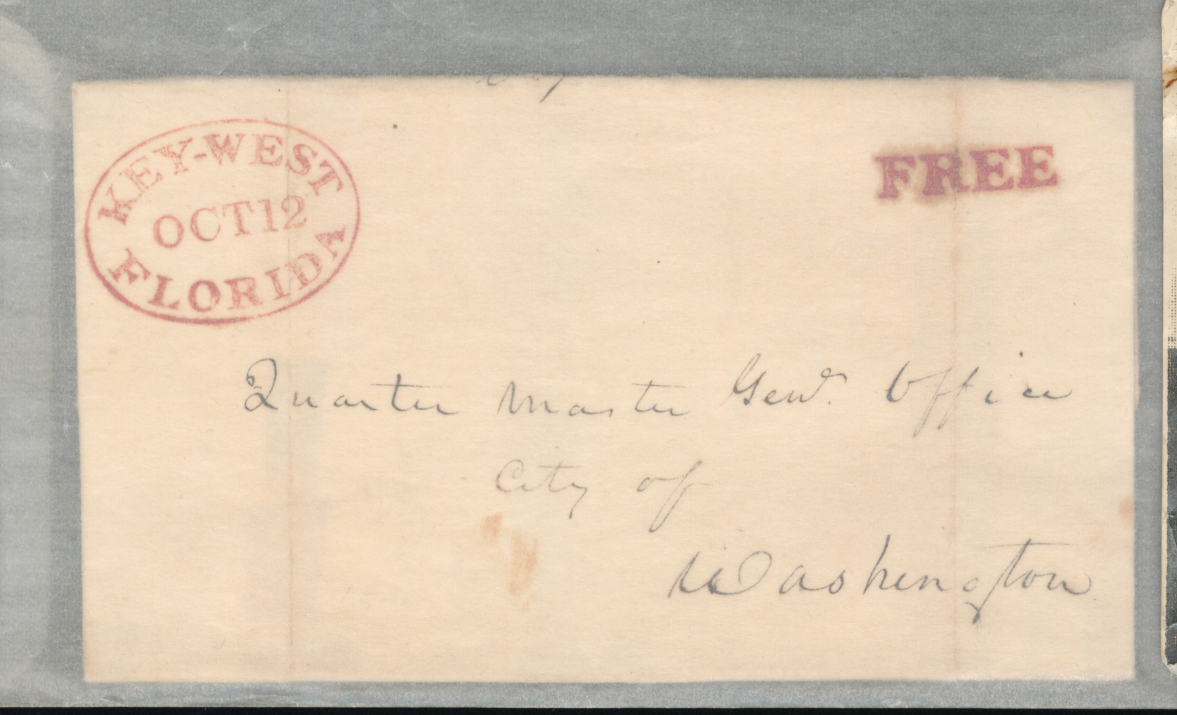 KEY-WEST
OCT 12
FLORIDA
FREE
Quarter Master Genl. Office
City of
Washington